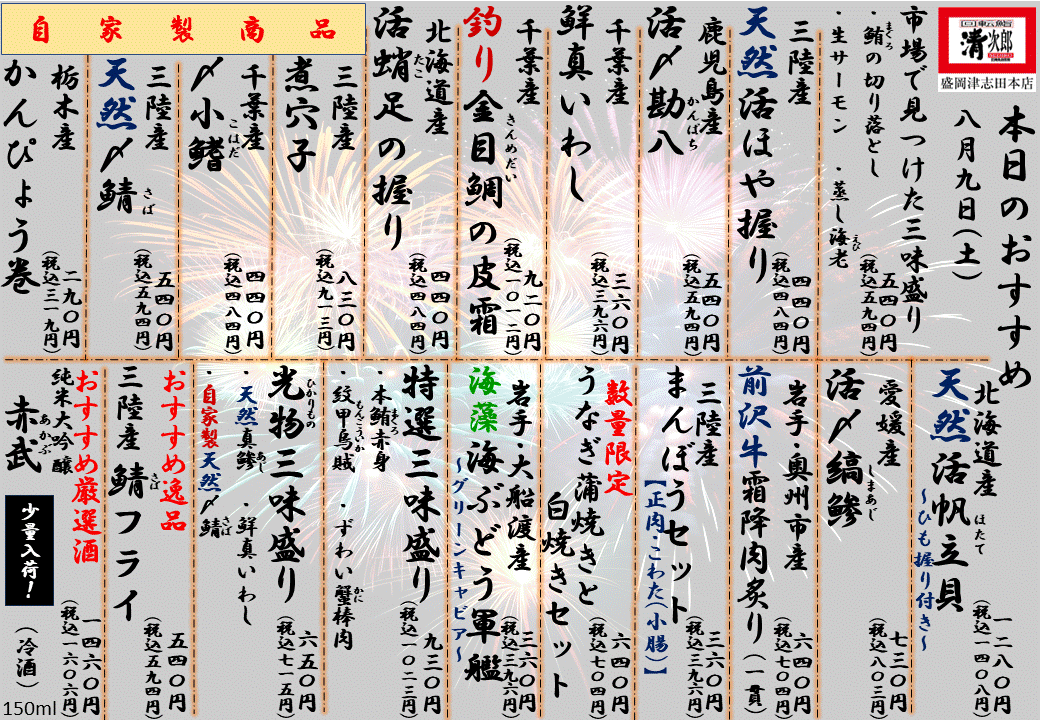 回転鮨
清次郎
盛岡津志田本店
本日のおすすめ
八月九日(土)
市場で見つけた三味盛り
・鮪の切り落とし
まぐろ
・生サーモン ・蒸し海老
えび
五四〇円
(税込五九四円)
三陸産
天然活ほや握り
四四〇円
(税込四八四円)
鹿児島産
活〆勘八
かんぱち
五四〇円
(税込五九四円)
千葉産
鮮真いわし
三六〇円
(税込三九六円)
千葉産
釣り金目鯛の皮霜
きんめだい
九二〇円
(税込一〇一二円)
北海道産
活蛸足の握り
たこ
四四〇円
(税込四八四円)
自家製商品
三陸産
煮穴子
八三〇円
(税込九一三円)
千葉産
〆小鰭
こはだ
四四〇円
(税込四八四円)
三陸産
天然〆鯖
さば
五四〇円
(税込五九四円)
栃木産
かんぴょう巻
二九〇円
(税込三一九円)
北海道産
天然活帆立貝
ほたて
~ひも握り付き~
一二八〇円
(税込一四〇八円)
愛媛産
活〆縞鯵
しまあじ
七三〇円
(税込八〇三円)
岩手・奥州市産
前沢牛霜降肉炙り(一貫)
六四〇円
(税込七〇四円)
三陸産
まんぼうセット
【正肉・こわた(小腸)】
三六〇円
(税込三九六円)
数量限定
うなぎ蒲焼きと
白焼きセット
六四〇円
(税込七〇四円)
岩手・大船渡産
海藻海ぶどう軍艦
~グリーンキャビア~
三六〇円
(税込三九六円)
特選三味盛り
・本鮪赤身
まぐろ
・紋甲烏賊 ・ずわい蟹棒肉
もんごういか
かに
九三〇円
(税込一〇二三円)
光物三味盛り
ひかりもの
・天然真鯵 ・鮮真いわし
あじ
・自家製天然〆鯖
さば
六五〇円
(税込七一五円)
おすすめ逸品
三陸産 鯖フライ
さば
五四〇円
(税込五九四円)
おすすめ厳選酒
純米大吟醸
赤武
あかぶ
少量入荷!
(冷酒)
一四六〇円
(税込一六〇六円)
150ml